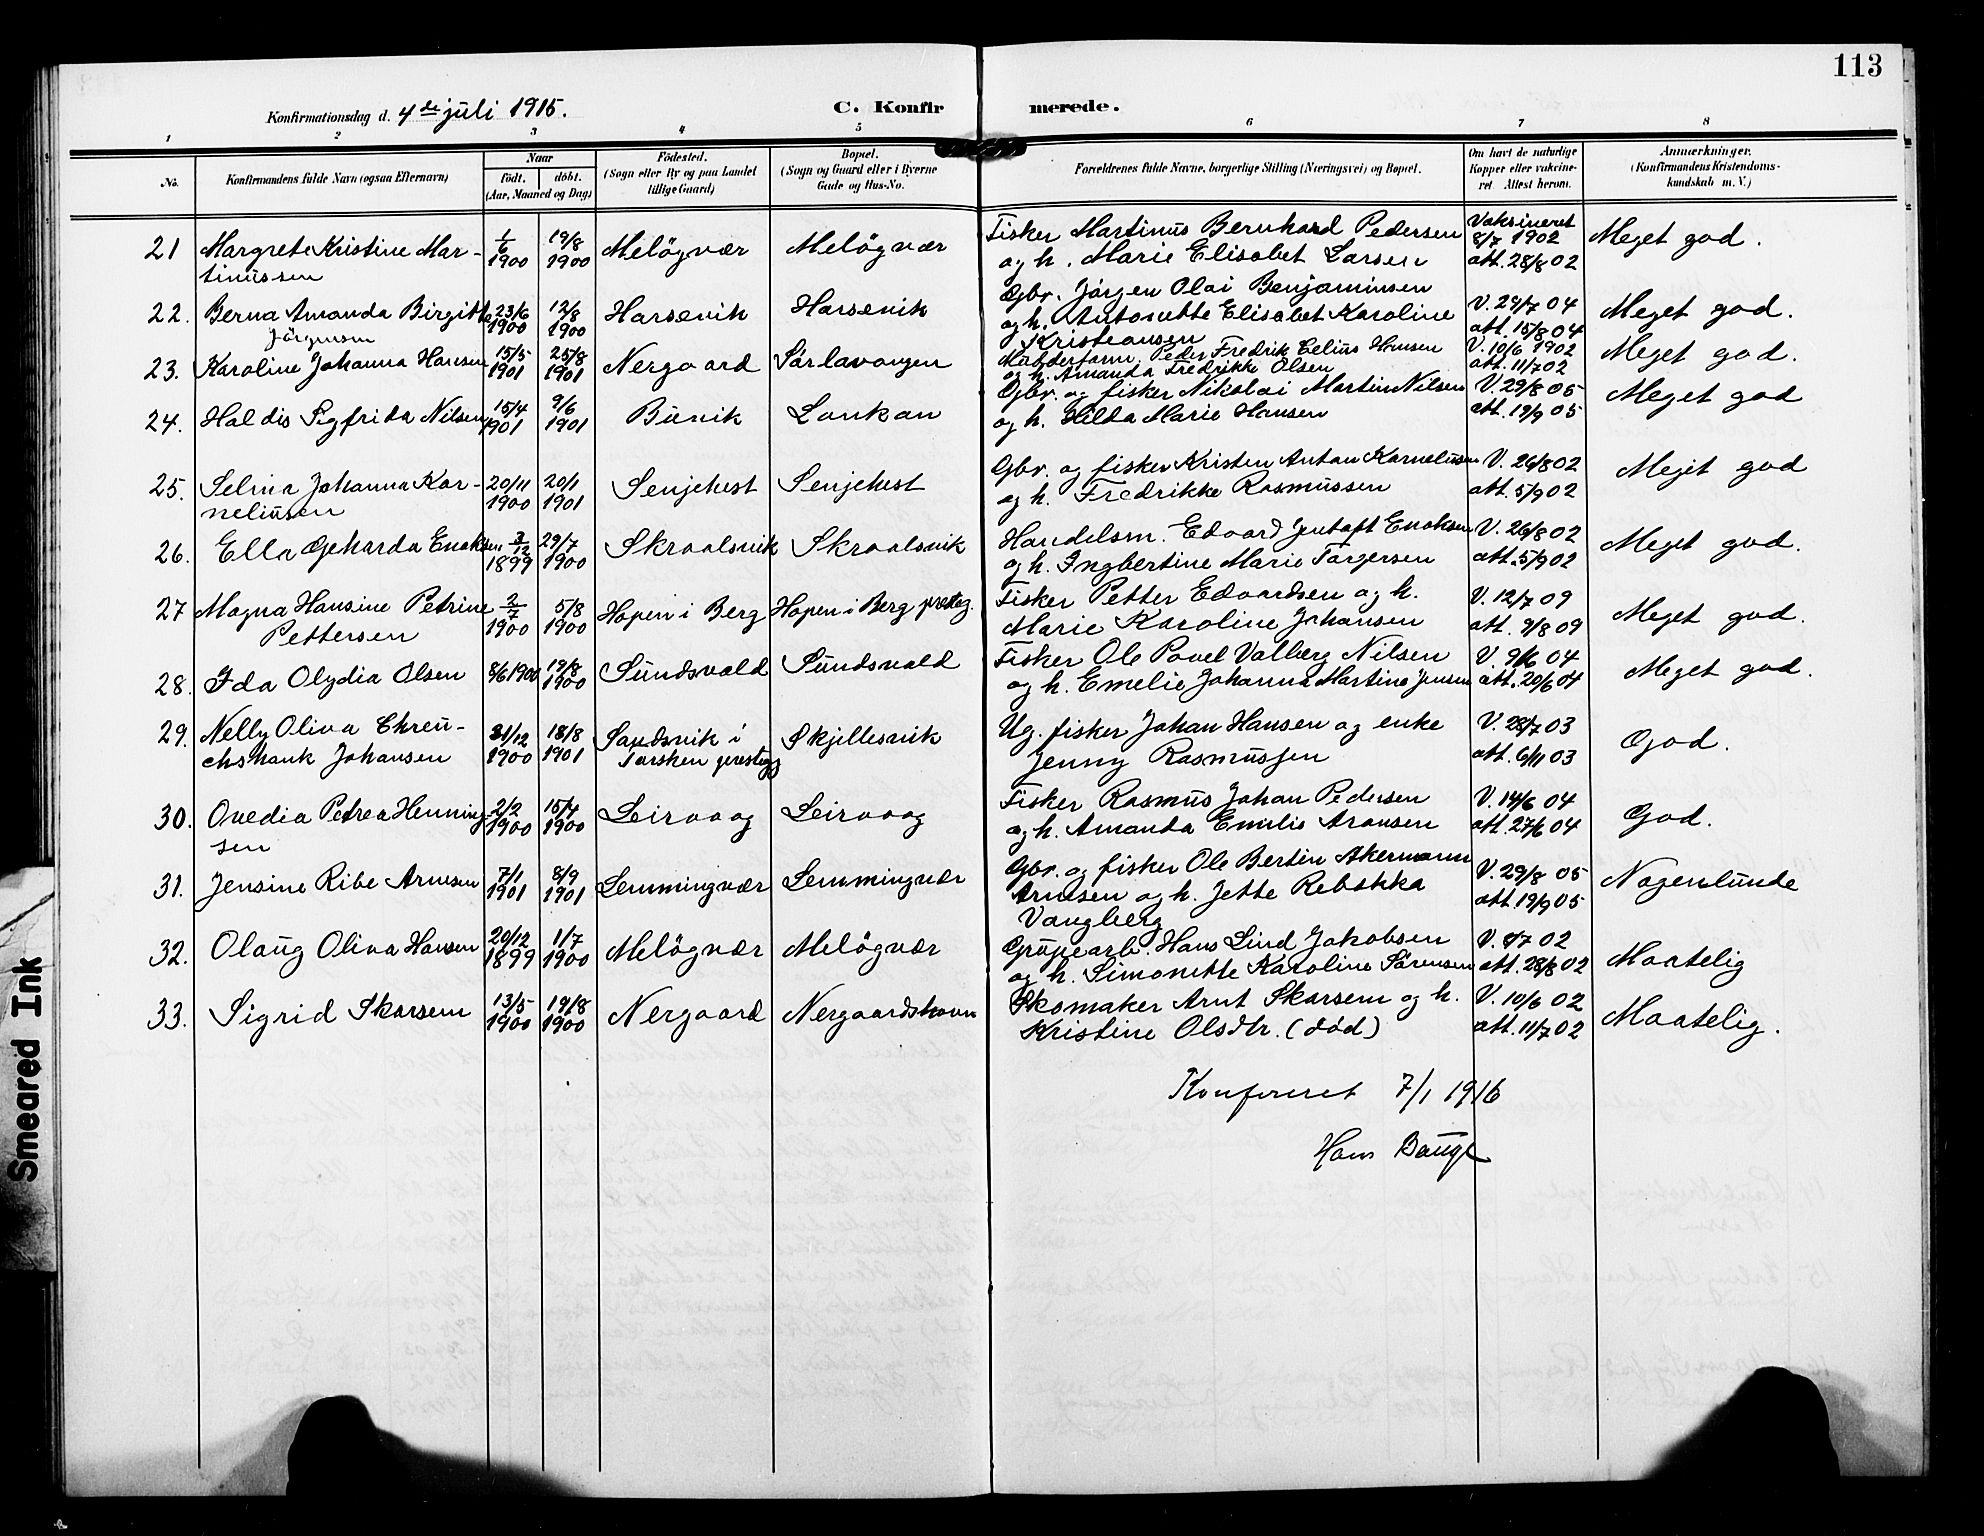 113
Konfirmationsdag d. 4de juli 1915.
C. Konfirmerede.
1 2 3 4 5 6 7 8
No.
Konfirmandens fulde Navn (ogsaa Efternavn)
Naar
født. døbt.
(Aar, Maaned og Dag)
Fødested.
(Sogn eller By og paa Landet
tillige Gaard)
Bopæl.
(Sogn og Gaard eller i Byerne
Gade og Hus-No.
Forældrenes fulde Navne, borgerlige Stilling (Næringsvei) og Bopæl.
Om havt de naturlige
Kopper eller vakcine-
ret. Attest herom.
Anmærkninger.
(Konfirmandens Kristendoms-
kundskab m. V.)
21 Margrete Kristine Mar- 1/6 19/8 Meløgvær Meløgvær Fisker Martinus Bernhard Pedersen Vaksineret
tinussen 1900 1900 og h. Marie Elisabet Larsen 8/7 1902 Meget god.
att. 28/8 02
22. Berna Amanda Birgitte 23/6 12/8 Harsevik Harsevik Gbr. Jørgen Olai Benjaminsen V. 29/7 04 Meget god.
Jørgensen 1900 1900 og h. Antonette Elisabet Karoline att. 15/8 04
Kristeansen
23. Karoline Johanna Hansen 15/5 25/8 Nergaard Sørlavangen Peder Fredrik Celius Hansen V. 10/6 1902 Meget god.
1901 1901 og h. Amanda Fredrikke Olsen att. 11/7 02
24. Haldis Sigfrida Nilsen 15/4 9/6 Buvik Lankan Gbr. og fisker Nikolai Martin Nilsen V. 29/8 05 Meget god
1901 1901 og h. Hilda Marie Hansen att. 19/9 05
25. Selma Johanna Kor- 20/11 20/1 Senjehest Senjehest Gbr. og fisker Kristen Antan Kornelussen V. 26/8 02 Meget god
neliussen 1900 1901 og h. Fredrikke Rasmussen att. 5/9 02
26. Ella Geharda Enoksen 3/12 29/7 Skroalsvik Skroalsvik Handelsm. Edvard Enoksen V. 26/8 02 Meget god.
1899 1900 og h. Ingbertine Marie Torgersen att. 5/9 02
27 Magna Hansine Petrine 2/7 5/8 Hopen i Berg Hopen i Berg presteg. Fisker Petter Edvardsen og h. V. 12/7 09 Meget god.
Pettersen 1900 1900 Marie Karoline Johansen att. 9/8 09
28. Ida Olydia Olsen 8/6 1900 19/8 Sundsvald Sundsvald Fisker Ole Pavel Valberg Nilsen V. 9/6 04 Meget god.
1900 og h. Emelie Johanna Martine Jensen att. 20/6 04
29. Nelly Oliva Ehreu- 31/12 18/8 Sandsvik i Skjellesvik Ug. fisker Johan Hansen og enke V. 28/7 03 God.
chshank Johansen 1900 1901 Torsken prestegj Jenny Rasmussen att. 6/11 03
30. Ovedia Petrea Henning- 2/2 15/4 Leirvaag Leirvaag Fisker Rasmus Johan Pedersen V. 14/6 04 God.
sen 1900 1900 og h. Amanda Emilie Aronsen att. 27/6 04
31. Jensine Ribe Arnesen 7/1 8/9 Lemmingvær Lemmingvær Gbr. og fisker Ole Bertin Akermann V. 29/8 05 Nogenlunde
1901 1901 Arnesen og h. Jette Rebekka att. 19/9 05
Vangberg
32. Olaug Oliva Hansen 20/12 1/7 Meløgvær Meløgvær Grubearb. Hans Lind Jakobsen V. 8/7 02 Maatelig
1899 1900 og h. Simonette Karoline Sørensen att. 28/8 02
33. Sigrid Skarsem 13/5 19/8 Nergaard Nergaardshavn Skomaker Arnt Skarsem og h. V. 10/6 02 Maatelig.
1900 1900 Kristine Olsdtr. (død) att. 11/7 02
Konfereret 7/1 1916
Hans Bauge
Smeared Ink